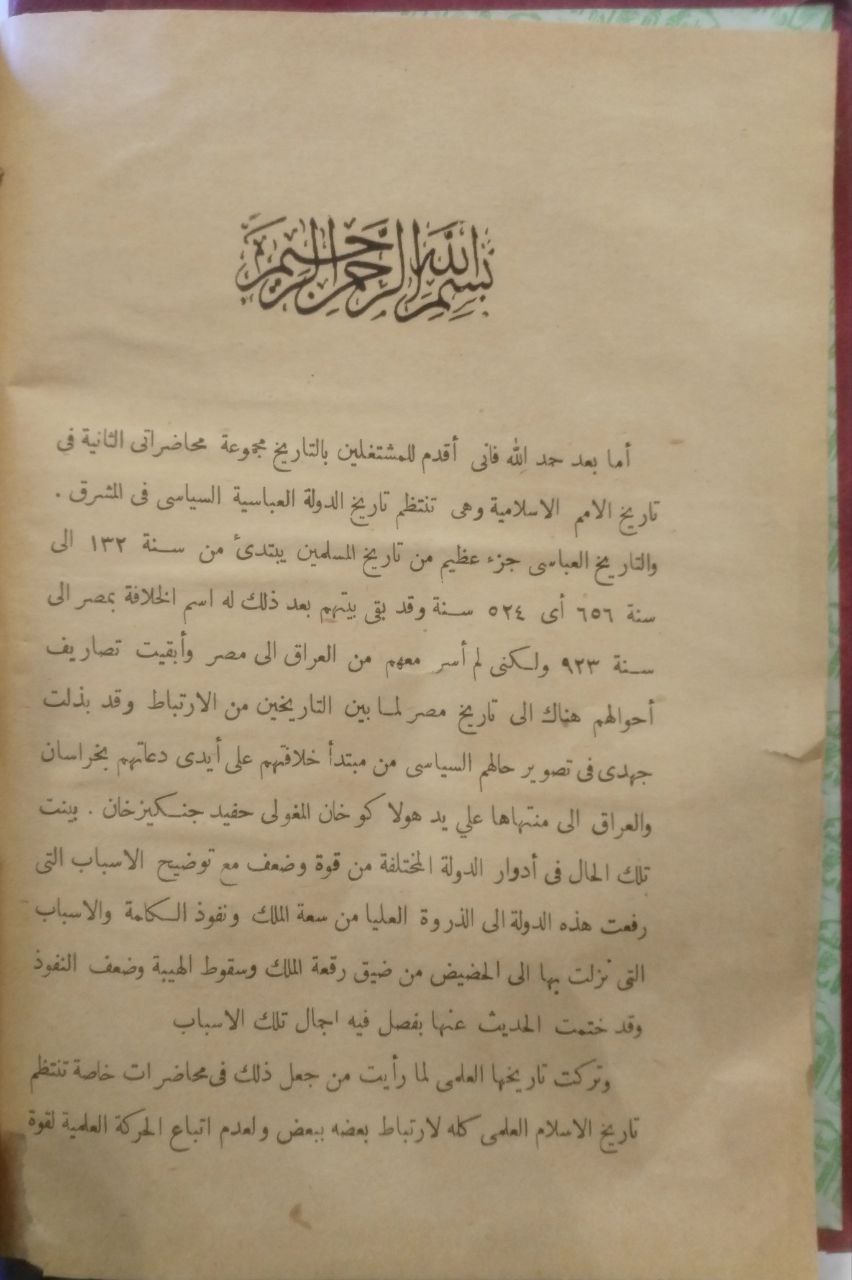 بسم الله الرحمن الرحيم
أما بعد حمد الله فانى أقدم للمشتغلين بالتاريخ مجموعة محاضراتى الثانية فى
تاريخ الامم الاسلامية وهى تنتظم تاريخ الدولة العباسية السياسى فى المشرق .
والتاريخ العباسى جزء عظيم من تاريخ المسلمين يبتدئ من سنة ١٣٢ الى
سنة ٦٥٦ أى ٥٢٤ سنة وقد بقى بيتهم بعد ذلك له اسم الخلافة بمصر الى
سنة ٩٢٣ ولكنى لم أسر معهم من العراق الى مصر وأبقيت تصاريف
أحوالهم هناك الى تاريخ مصر لما بين التاريخين من الارتباط وقد بذلت
جهدى فى تصوير حالهم السياسى من مبتدأ خلافتهم على أيدى دعاتهم بخراسان
والعراق الى منتهاها علي يد هولا كو خان المغولى حفيد جنكيزخان . بينت
تلك الحال فى أدوار الدولة المختلفة من قوة وضعف مع توضيح الاسباب التى
رفعت هذه الدولة الى الذروة العليا من سعة الملك ونفوذ الكلمة والاسباب
التى نزلت بها الى الحضيض من ضيق رقعة الملك وسقوط الهيبة وضعف النفوذ
وقد ختمت الحديث عنها بفصل فيه اجمال تلك الاسباب
وتركت تاريخها العلمى لما رأيت من جعل ذلك فى محاضرات خاصة تنتظم
تاريخ الاسلام العلمى كله لارتباط بعضه ببعض ولعدم اتباع الحركة العلمية لقوة